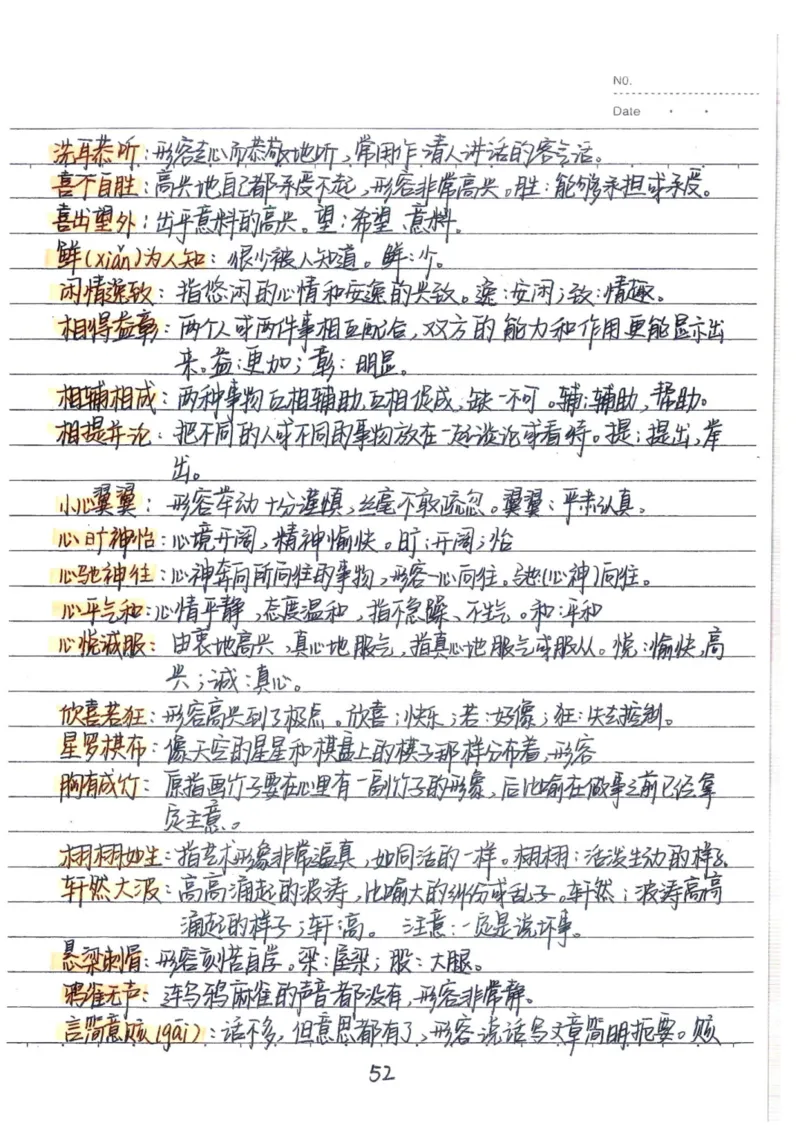 NO.
Date
洗耳恭听：形容专心而恭敬地听，常用作请人讲话的客气话。
喜不自胜：高兴地自己都承受不起，形容非常高兴。胜：能够承担或承受。
喜出望外：出乎意料的高兴。望：希望、意料。
鲜(xiǎn)为人知：很少被人知道。鲜：少。
闲情逸致：指悠闲的心情和安逸的兴致。逸：安闲；致：情趣。
相得益彰：两个人或两件事相互配合，双方的能力和作用更能显示出
来。益：更加；彰：明显。
相辅相成：两种事物互相辅助，互相促成，缺一不可。辅：辅助，帮助。
相提并论：把不同的人或不同的事物放在一起谈论或看待。提：提出，举
出。
小心翼翼：形容举动十分谨慎，丝毫不敢疏忽。翼翼：严肃认真。
心旷神怡：心境开阔，精神愉快。旷：开阔；怡
心驰神往：心神奔向所向往的事物，形容一心向往。驰(心神)向往。
心平气和：心情平静，态度温和，指不急躁、不生气。和：平和
心悦诚服：由衷地高兴，真心地服气，指真心地服气或服从。悦：愉快，高
兴；诚：真心。
欣喜若狂：形容高兴到了极点。欣喜：快乐；若：好像；狂：失去控制。
星罗棋布：像天空的星星和棋盘上的棋子那样分布着，形容
胸有成竹：原指画竹子要在心里有一副竹子的形象，后比喻在做事之前已经拿
定主意。
栩栩如生：指艺术形象非常逼真，如同活的一样。栩栩：活泼生动的样子
轩然大波：高高涌起的波涛，比喻大的纠纷或乱子。轩然：波涛高高
涌起的样子；轩：高。 注意：一定是说坏事。
悬梁刺骨：形容刻苦自学。梁：屋梁；股：大腿。
鸦雀无声：连乌鸦麻雀的声音都没有，形容非常静。
言简意赅(gāi)：话不多，但意思都有了，形容说话写文章简明扼要。赅
52